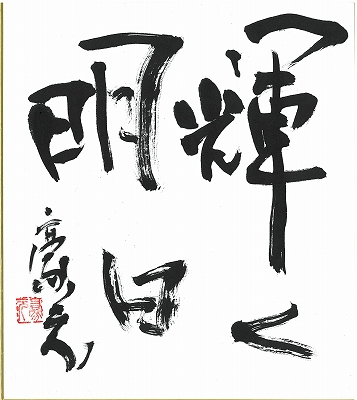 輝く
明日